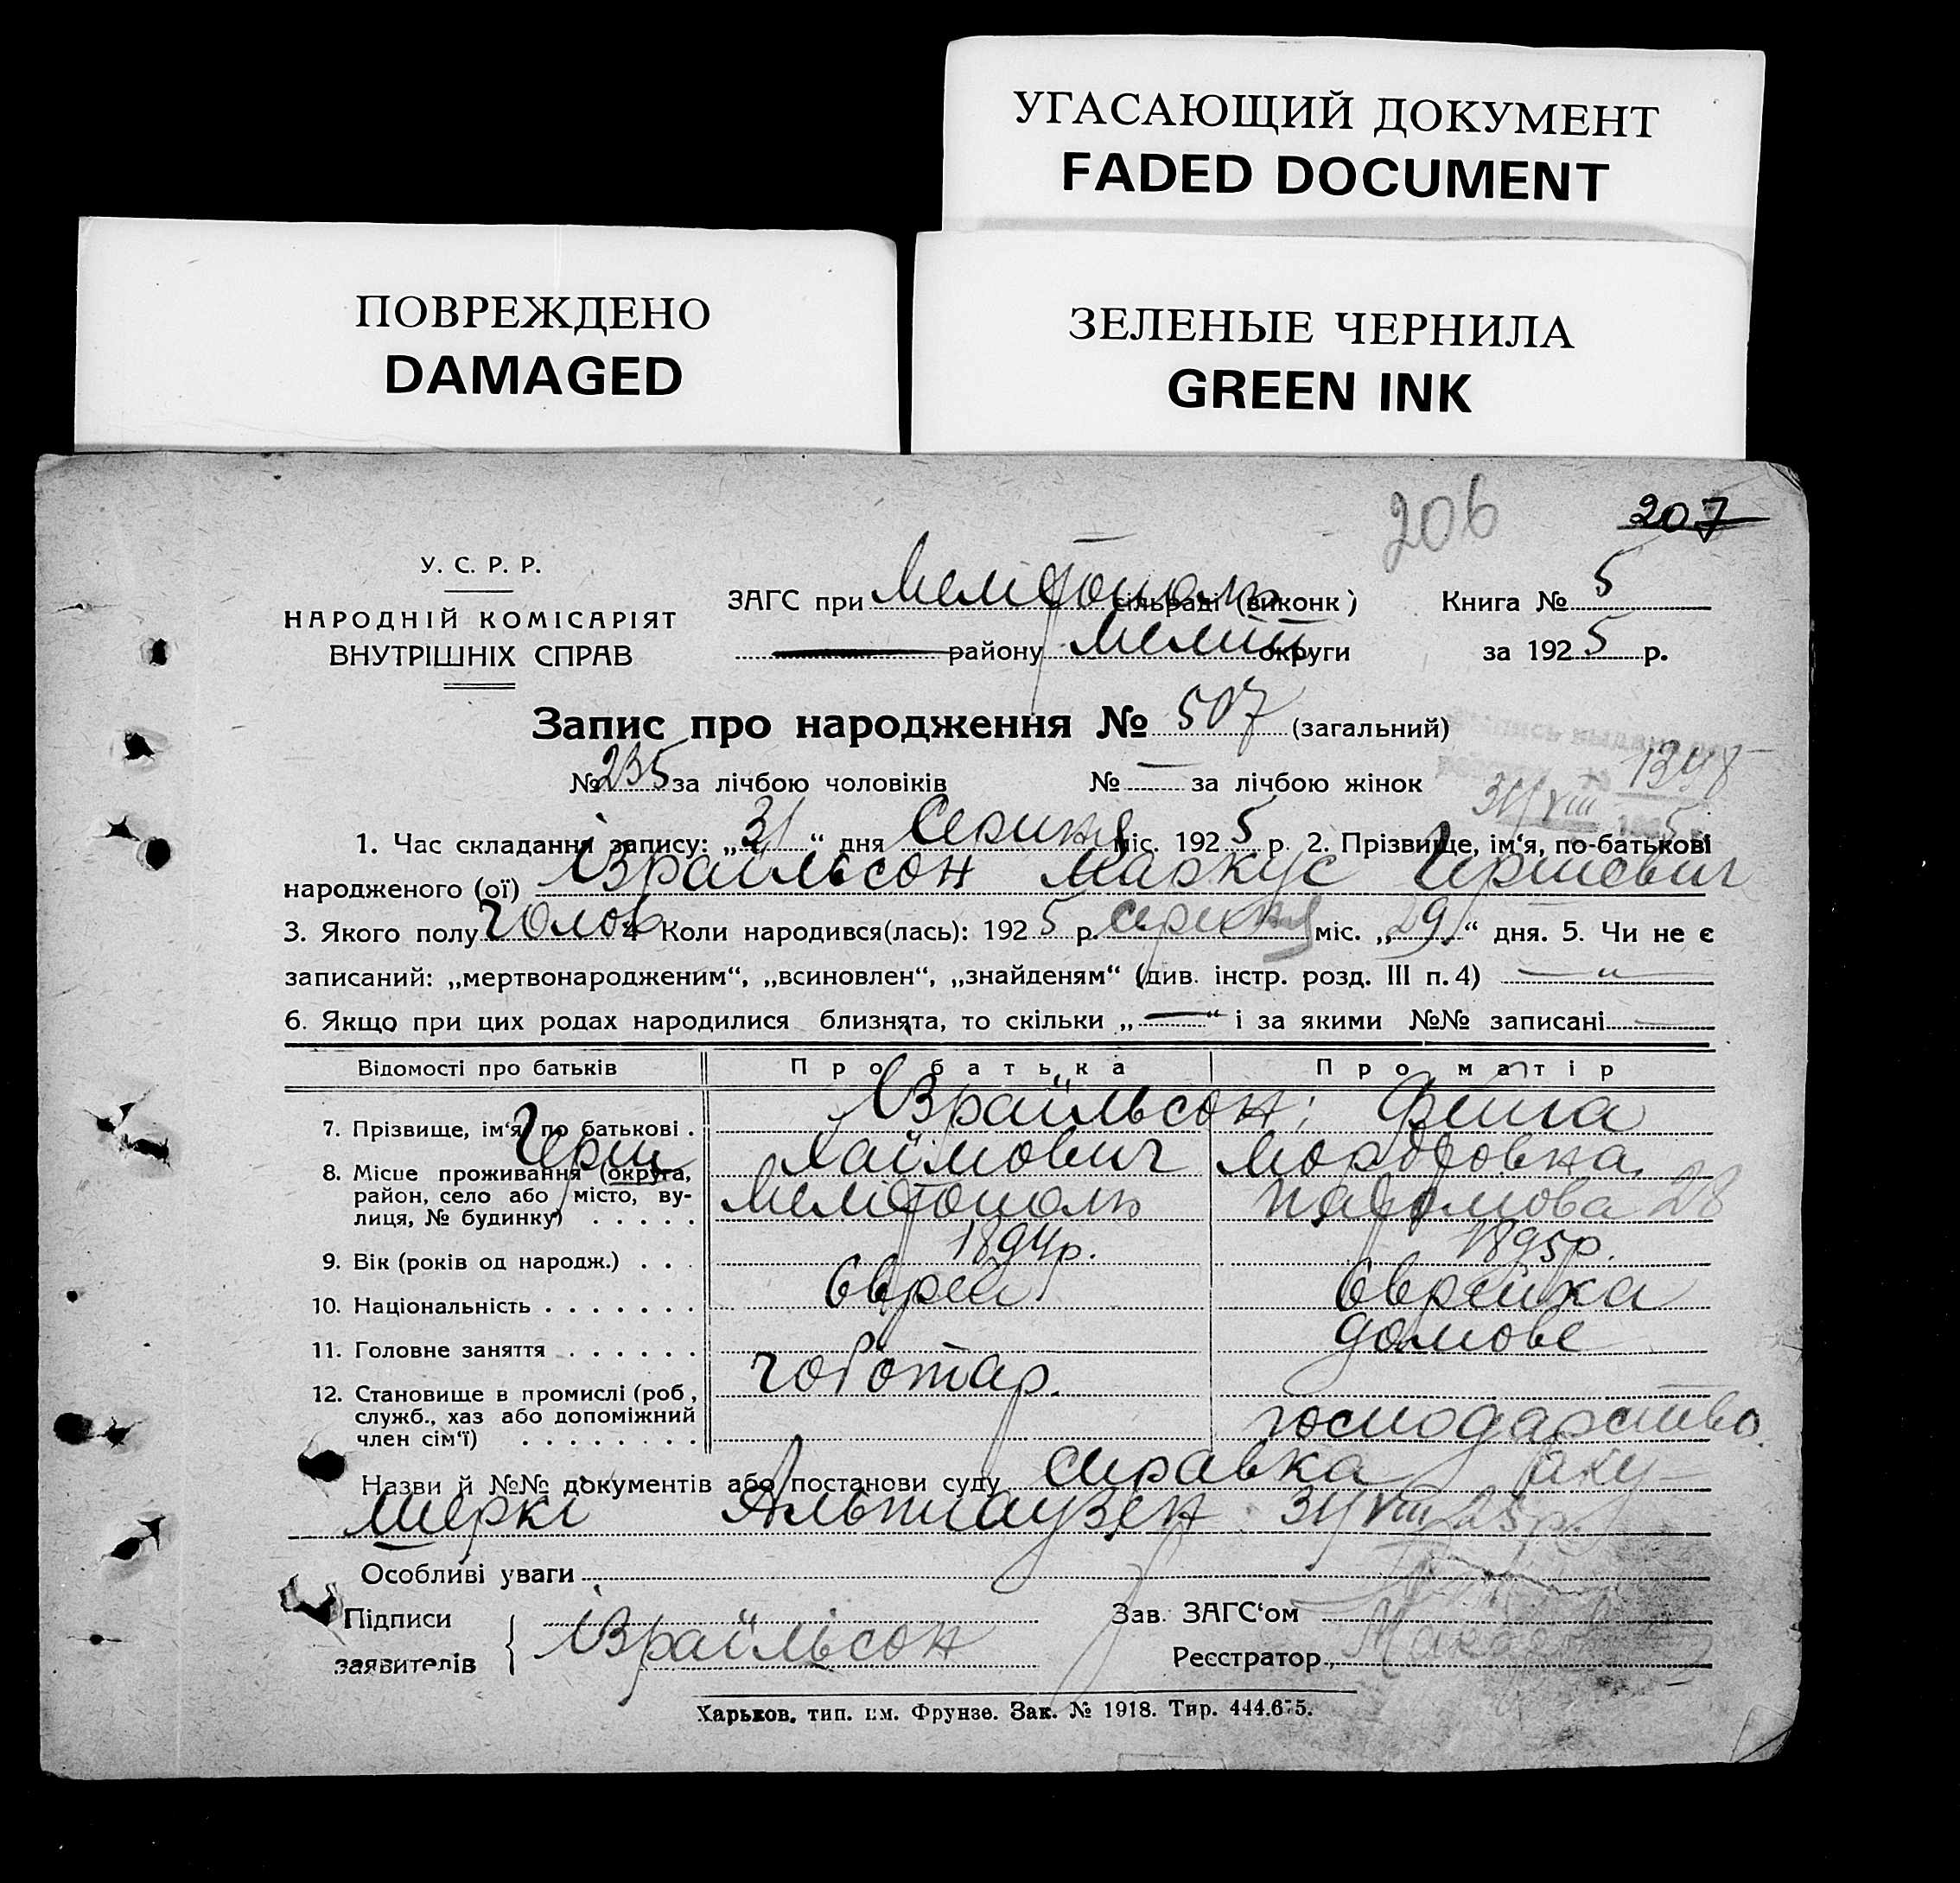 УГАСАЮЩИЙ ДОКУМЕНТ
FADED DOCUMENT
ПОВРЕЖДЕНО
DAMAGED
ЗЕЛЕНЫЕ ЧЕРНИЛА
GREEN INK
206 207
У. С. Р. Р.
НАРОДНІЙ КОМІСАРІЯТ
ВНУТРІШНІХ СПРАВ
ЗАГС при Мелітополь сільраді (виконк) Книга № 5
району Меліт округи за 1925 р.
Запис про народження № 507 (загальний)
№ 235 за лічбою чоловіків № — за лічбою жінок
1348
31/VIII
1. Час складання запису: „31“ дня Серпня міс. 1925 р. 2. Прізвище, ім‘я, по-батькові
народженого (ої) Ізраїльсон Маркус Гершевич
3. Якого полу Чолов 4 Коли народився(лась): 1925 р. серпня міс. „29“ дня. 5. Чи не є
записаний: „мертвонародженим“, „всиновлен“, „знайденям“ (див. інстр. розд. III п. 4) — „ —
6. Якщо при цих родах народилися близнята, то скільки „—“ і за якими №№ записані —
Відомості про батьків Про батька Про матір
7. Прізвище, ім‘я по батькові . Герш Ізраїльсон; Фейга
Хаїмович Мордковна
8. Місце проживання (округа,
район, село або місто, ву-
лиця, № будинку) . . . . . Мелітополь 28
9. Вік (років од народж.) . . . 1894р. 1895р.
10. Національність . . . . . . . Єврей Єврейка
11. Головне заняття . . . . . . чоботар. домове
12. Становище в промислі (роб,
служб., хаз або допоміжний
член сім‘ї) . . . . . . . . господарство.
Назви й №№ документів або постанови суду справка аку-
шеркі Альтгаузен 31/VIII 25 р.
Особливі уваги
Підписи
заявителів Ізраїльсон
Зав. ЗАГС‘ом
Реєстратор
Харьков, тип. им. Фрунзе. Зак. № 1918. Тир. 444.675.